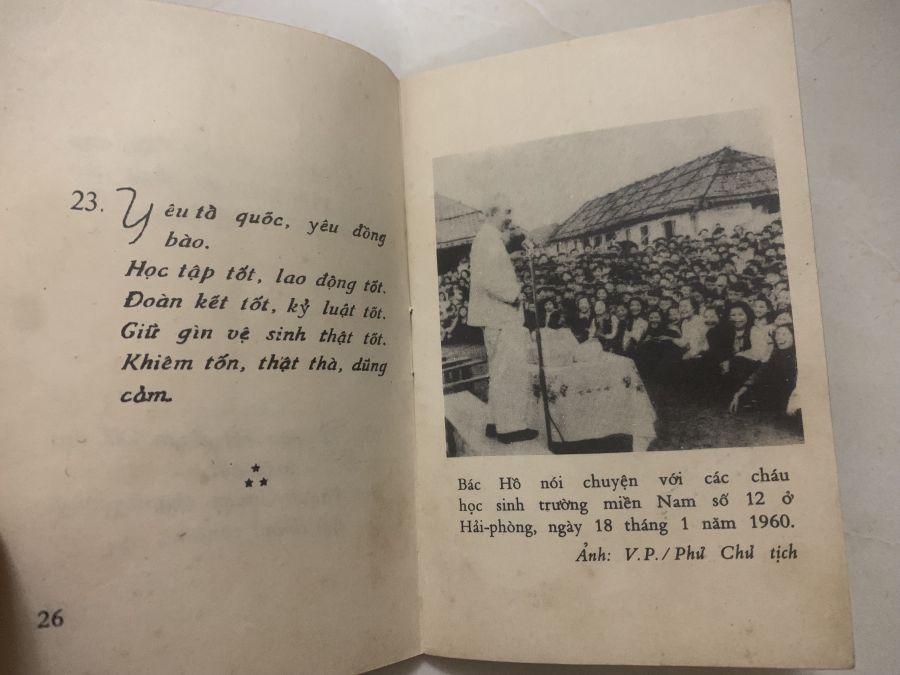 23. Yêu tổ quốc, yêu đồng
bào.
Học tập tốt, lao động tốt.
Đoàn kết tốt, kỷ luật tốt.
Giữ gìn vệ sinh thật tốt.
Khiêm tốn, thật thà, dũng
cảm.
26
Bác Hồ nói chuyện với các cháu
học sinh trường miền Nam số 12 ở
Hải-phòng, ngày 18 tháng 1 năm 1960.
Ảnh: V.P./Phủ Chủ tịch